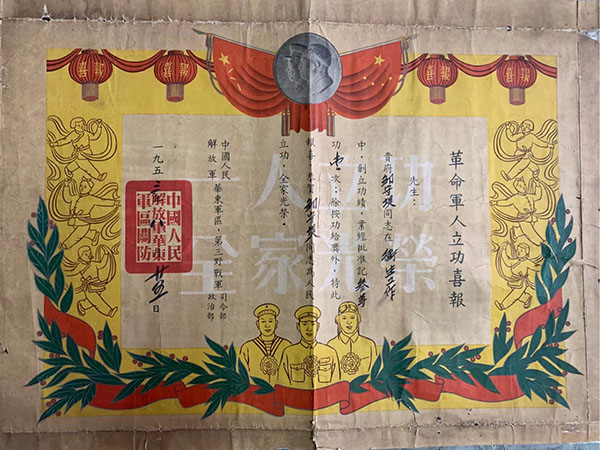 喜報
喜報
喜報
喜報
一人立功
全家光榮
革命軍人立功喜報
先生:
貴府刘守同志在衛生工作
中,創立功績,業經批准記叁等
功壹次;除按功給獎外,特此
報喜,恭賀刘守同志為人民
立功,全家光榮。
中國人民
解放軍
華東軍區、第三野戰軍
司令部
政治部
一九五三年月廿五日
中國人民
解放軍華東
軍區關防